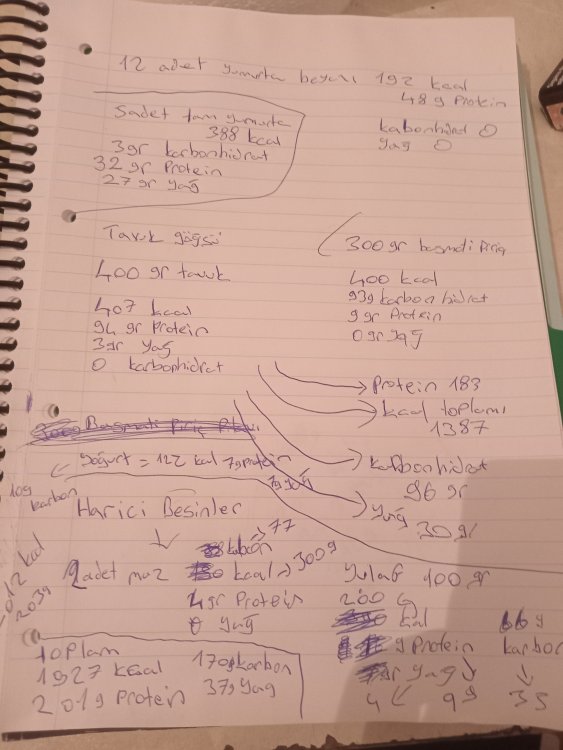 12 adet yumurta beyazı 192 kcal
48 g Protein
kabonhidrat 0
yağ 0
5adet tam yumurta
388 kcal
3gr karbonhidrat
32 gr Protein
27 gr yağ
Tavuk göğsü
400 gr tavuk
407 kcal
94 gr Protein
3gr yağ
0 karbohidrat
300 gr basmati Pirinç
400 kcal
93g karbon hidrat
9 gr Protein
0 gr yağ
Protein 183
kcal toplamı
1387
karbonhidrat
96 gr
yağ
30 gr
Basmati Pirinç Pilavı
yoğurt = 122 kal 7g protein
7g yağ
10g
karbon
Harici Besinler
77
2 adet muz
kcal → 300 g
4gr Protein
0 yağ
yulaf 100 gr
200 G
kal
g Protein
gr yağ
66 g
karbon
4
9g
33
2012 kal
203g
toplam
1927 kcal
201g Protein
170g karbon
37g yağ